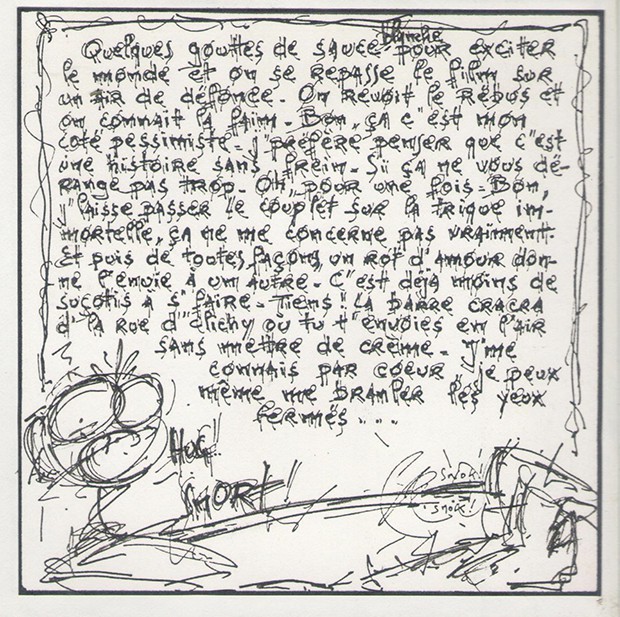 Quelques gouttes de sauce blanche pour exciter
le monde et on se repasse le film sur
un air de défonce. On revoit le rébus et
on connait la faim. Bon, ça c"est mon
coté pessimiste. j"préfère penser que c"est
une histoire sans frein. Si ça ne vous dé-
range pas trop. Oh, pour une fois. Bon,
j"laisse passer le couplet sur la trique im-
mortelle, ça ne me concerne pas vraiment.
Et puis de toutes façons, un rot d'amour don-
ne l'envie à un autre. C"est déjà moins de
sucotis a s"faire. Tiens " la barre cracra
d"la rue d"Clichy ou tu t"envoies en l'air
sans mettre de crème. J'me
connais par coeur " je peux
même me branler les yeux
fermés ...
SNORT!
snok!
snok!